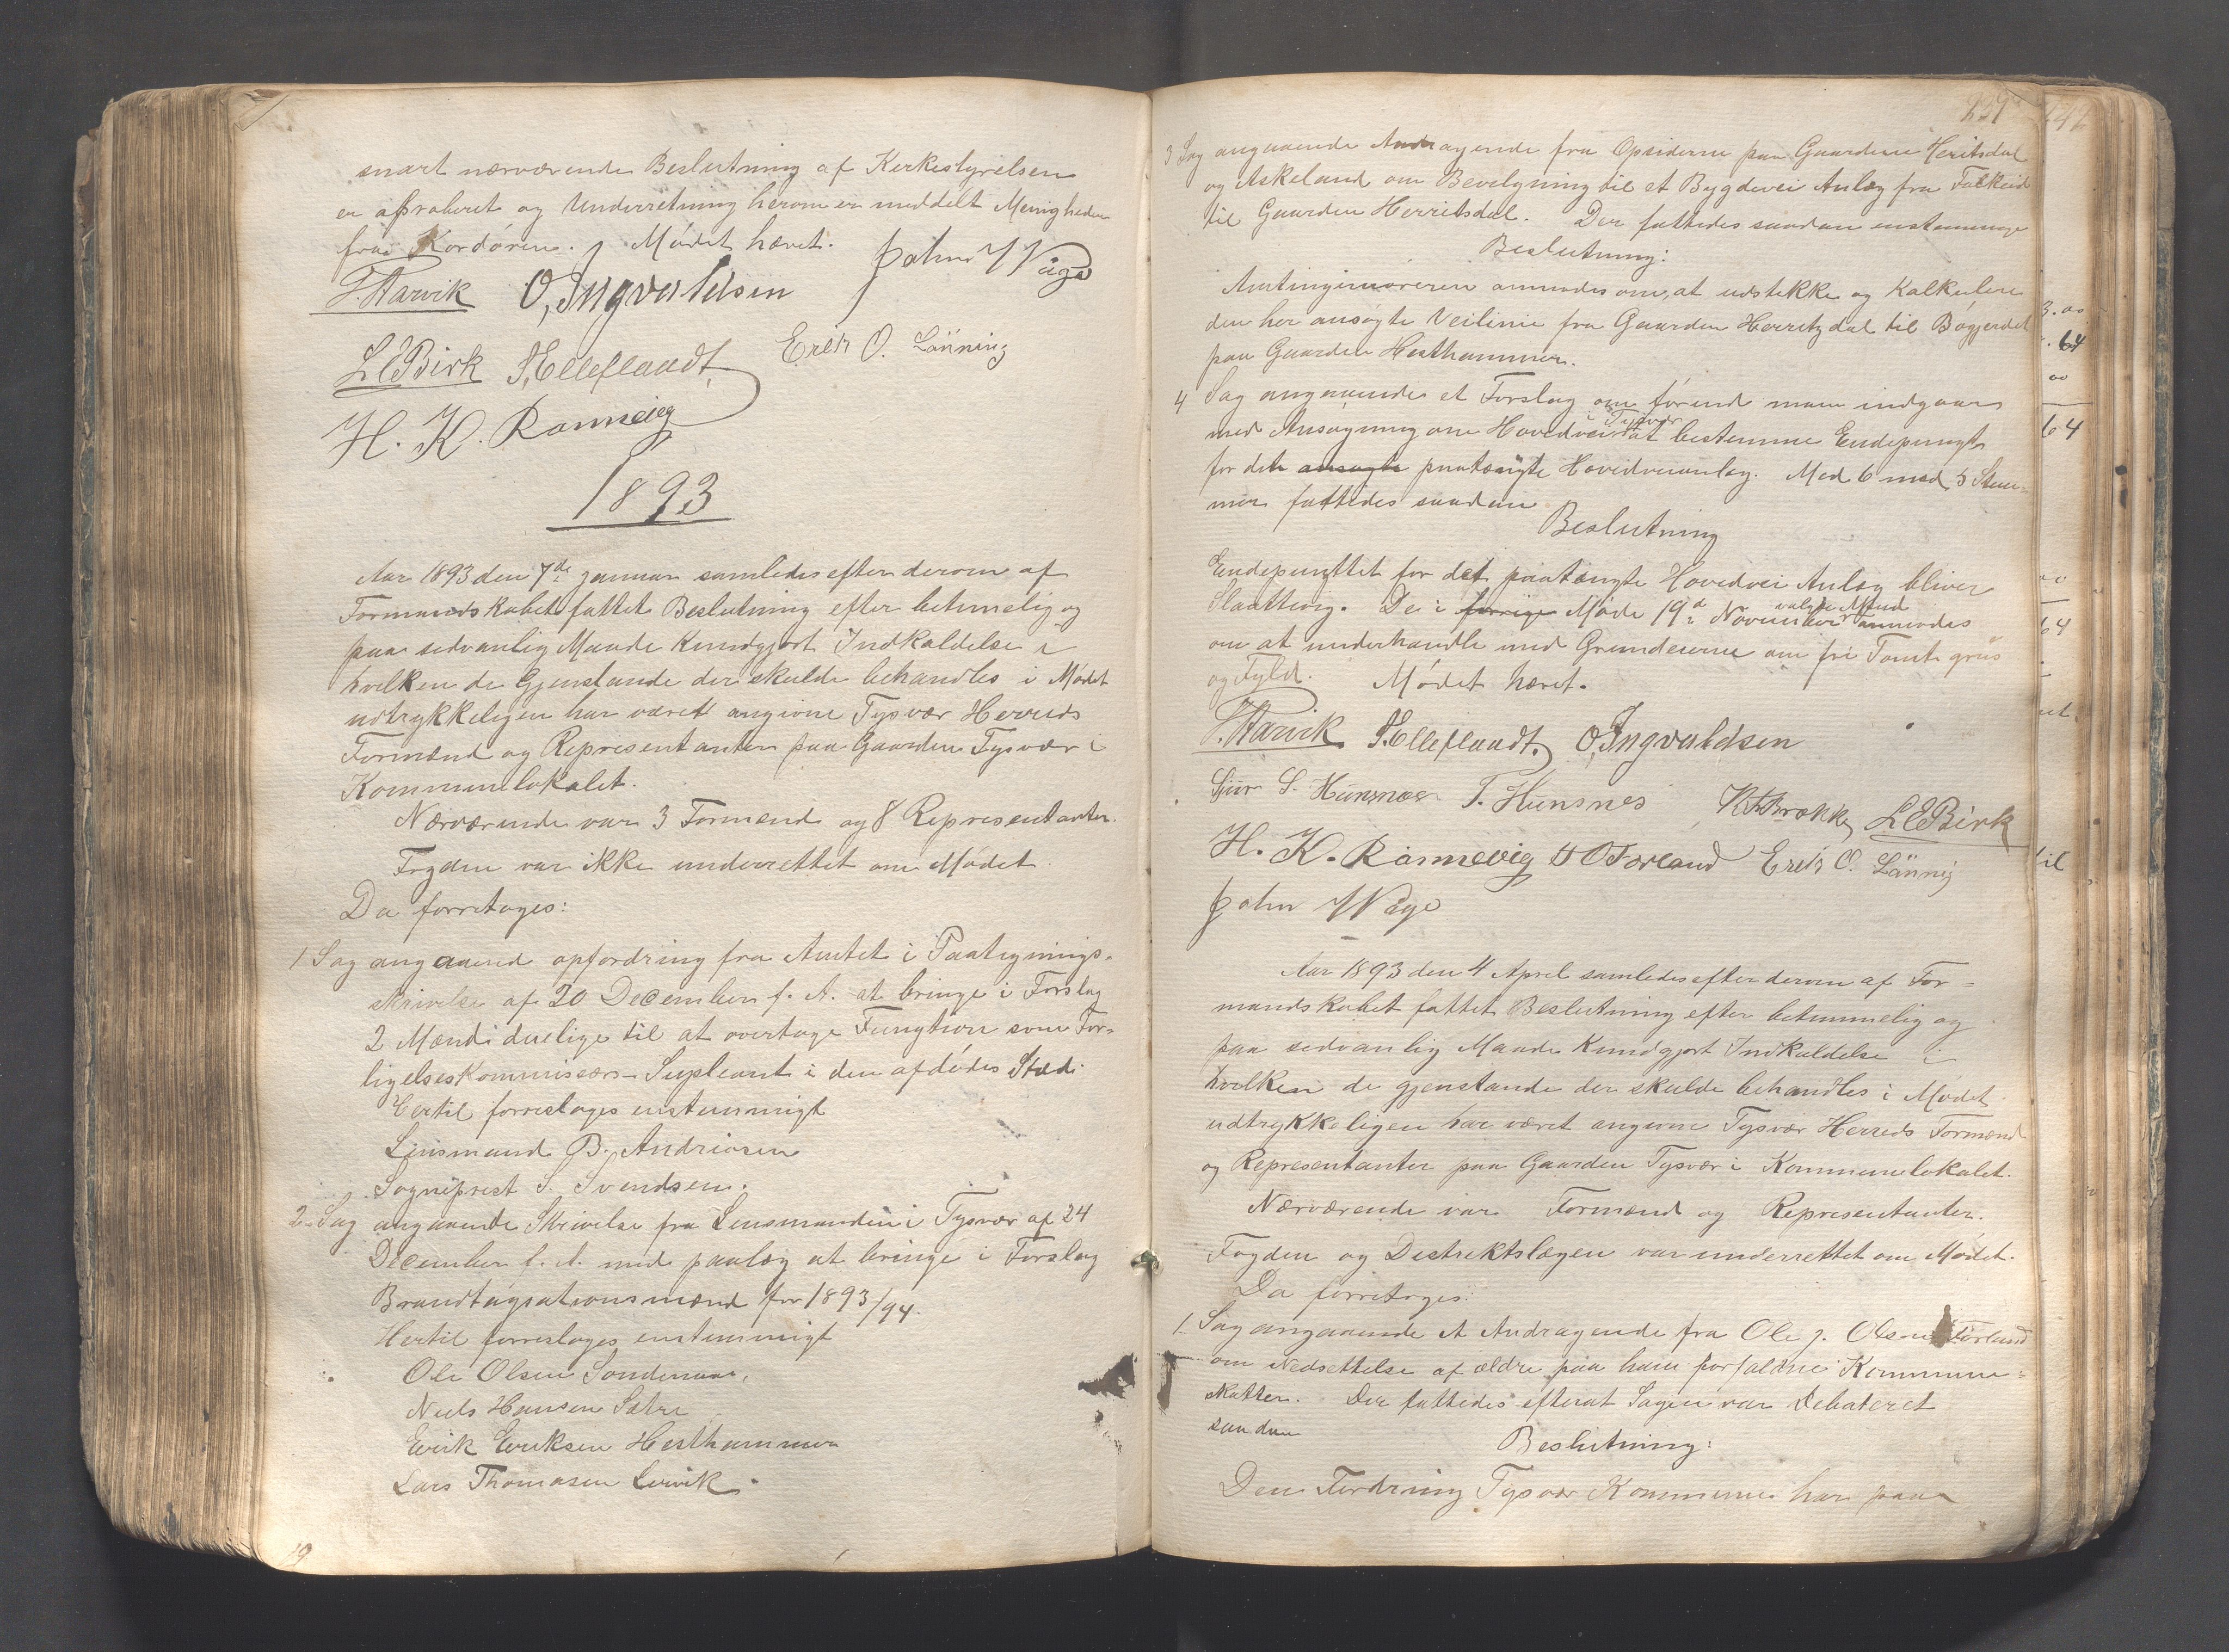 snart nærværende Beslutning af Kirkestyrelsen
er approberet og Underretning herom er meddelt Menigheden
fra Kordøren. Mødet hævet.
John Våge
T. Aarvik O, Ingvaldsen
L E Birk S. Elleflaadt Erik O. Lønning
H. K. Ramnevig
1893
Aar 1893 den 7de Januar samledes efter derom af
Formandskabet fattet Beslutning efter betimelig og
paa sedvanlig Maade Kundgjort Indkaldelse i
hvilken de Gjenstande der skulde behandles i Mødet
udtrykkeligen har været angivne Tysvær Herreds
Formænd og Representanter paa Gaarden Tysvær i
Kommunelokalet.
Nærværende var 3 Formænd og 8 Representanter.
Fogden var ikke underrettet om Mødet
Da forretoges:
1 Sag angaaend opfordring fra Amtet i Paategnings-
skrivelse af 20 December f. A. at bringe i Forslag
2 Mænd duelige til at overtage Fungtion som For-
ligelseskommisærs-Supleant i den afdødes Sted.
Hertil foresloges enstemmigt
Linsmand B. Andriasen
Sogneprest S. Svendsen.
2. Sag angaaende Skrivelse fra Lensmanden i Tysvær af 24
December f. A. med paalæg at bringe i Forslag
Brandtagsationsmænd for 1893/94.
Hertil foresloges enstemmigt
Ole Olsen Søndenaa,
Niels Hansen Sætre
Eirik Eriksen Hesthammer
Lars Thomasen Lervik.
19
439
3 Sag angaaende Andragende fra Opsiderne paa Gaardene Heritsdal
og Askeland om Bevilgning til et Bygdevei Anlæg fra Falkeid
til Gaarden Herritsdal. Der fattedes saadan enstemmige
Beslutning:
Amtingeniøreren anmodes om, at udstikke og Kalkulere
den her ansøgte Veilinie fra Gaarden Herritzdal til Bøgjerdet
paa Gaarden Hesthammer.
4 Sag angaaende et Forslag om førend man indgaar
i Tysvær
med Ansøgning om Hovedvei at bestemme Endepungt
for det ansøgte paatængte Hovedveianlæg. Med 6 mod 5 Stem-
mer fattedes saadan
Beslutning
Endepungtet for det paatængte Hovedvei Anlæg bliver
Slaattevig. De i forrige Møde 19d November valgte Mænd anmodes
om at underhandle med Grundeierne om fri Tomt grus
og Fyld. Mødet hævet.
T. Aarvik S. Elleflaadt. O, Ingvaldsen
Sjur S. Hunsnæs T. Hunsnes K H Brække L E Birk
H. K. Ramnevig H O Førland Erik O. Lønning
John Våge
Aar 1893 den 4 April samledes efter derom af For-
mandskabet fattet Beslutning efter betimmelig og
paa sedvanlig Maade Kundgjort Indkaldelse i
hvilken de gjenstande der skulde behandles i Mødet
udtrykkeligen har været angivne Tysvær Herreds Formænd
og Representanter paa Gaarden Tysvær i Kommunelokalet.
Nærværende var Formænd og Representanter.
Fogden og Destriktslægen var underrettet om Mødet.
Da forretoges:
1. Sag angaaende et Andragende fra Ole J. Olsen Førland
om Nedsettelse af ældre paa ham forfaldne Kommune-
skatter. Der fattedes efterat Sagen var Debateret
saadan
Beslutning:
Den Fordring Tysvær Kommune har paa
3.00
64
00
64
00
64
til